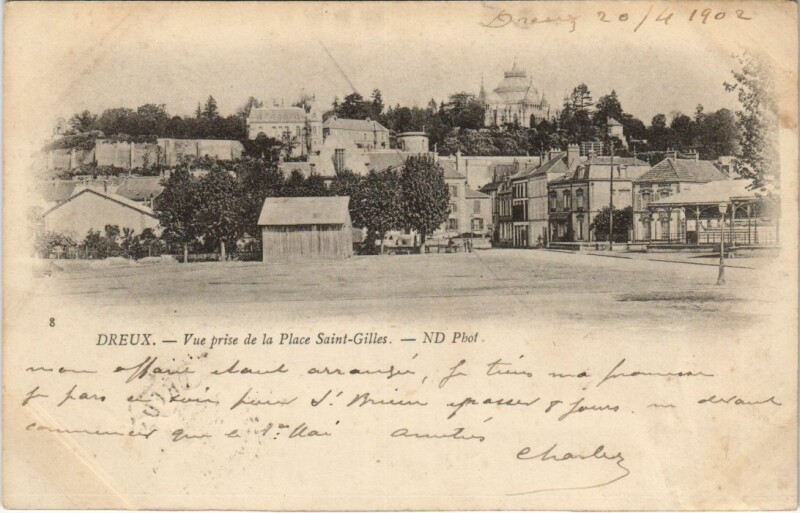 Dreux 20/4 1902
8
DREUX. — Vue prise de la Place Saint-Gilles. — ND Phot.
mon affaire étant arrangée, je tiens ma promesse
je pars ce soir pour St Brieuc passer 8 jours. ne devant
commencer que le 1er Mai Amitiés
Charles